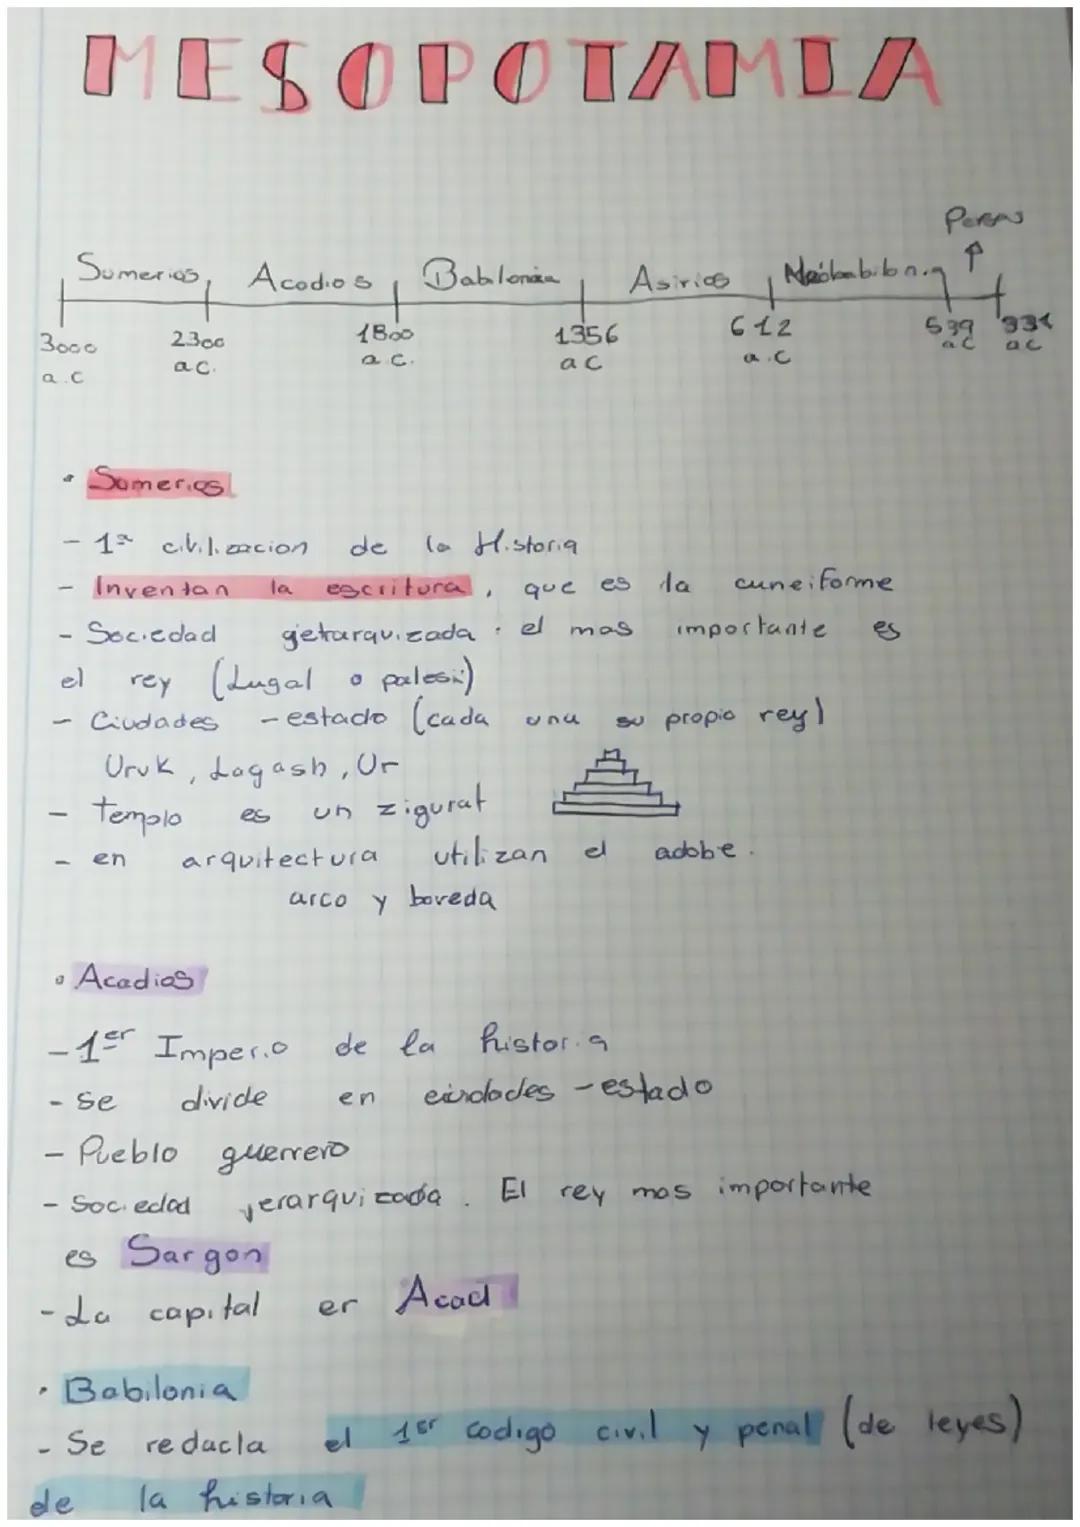 MESOPOTAMIA
Persas
Sumerios Acadios Babilonia Asirios Neobabilon.a
3000 a.C 2300 a.C. 1800 a.C. 1356 a C 612 a.C 539 a C 331 a C
• Sumerios
- 1ª civilizacion de la Historia
- Inventan la escritura, que es la cuneiforme
- Sociedad jerarquizada: el mas importante es
el rey (Lugal o palesi)
- Ciudades - estado (cada una su propio rey)
Uruk, Lagash, Ur
- templo es un zigurat
- en arquitectura utilizan el adobe.
arco y boveda
• Acadios
- 1er Imperio de la historia
- se divide en ciudades - estado
- Pueblo guerrero
- Sociedad jerarquizada. El rey mas importante
es Sargon
- La capital er Acad
• Babilonia
- Se redacta el 1er codigo civil y penal (de leyes)
de la historia